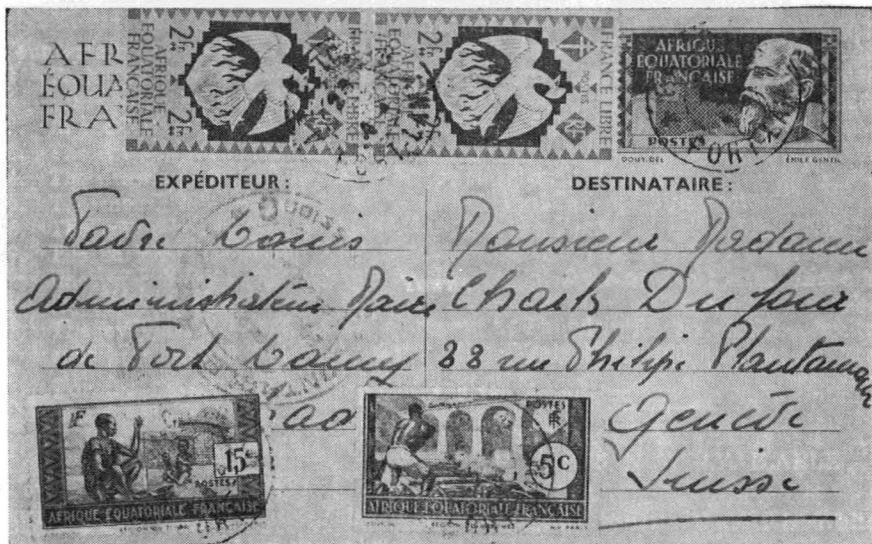 AFR
ÉQUA
FRA
2Fr 2Fr
AFRIQUE
ÉQUATORIALE
FRANÇAISE
FRANCE LIBRE
POSTES
2Fr 2Fr
AFRIQUE
ÉQUATORIALE
FRANÇAISE
FRANCE LIBRE
POSTES
AFRIQUE
ÉQUATORIALE
FRANÇAISE
POSTES
DOUY. DEL ÉMILE GENTIL
EXPÉDITEUR :
Louis
Administrateur Maire
de Fort Lamy
DESTINATAIRE :
Monsieur Madame
Charles Dufour
rue Philippe Plantamour
Genève
Suisse
RF
15c
POSTES
AFRIQUE ÉQUATORIALE FRANÇAISE
POSTES
RF
5c
AFRIQUE ÉQUATORIALE FRANÇAISE